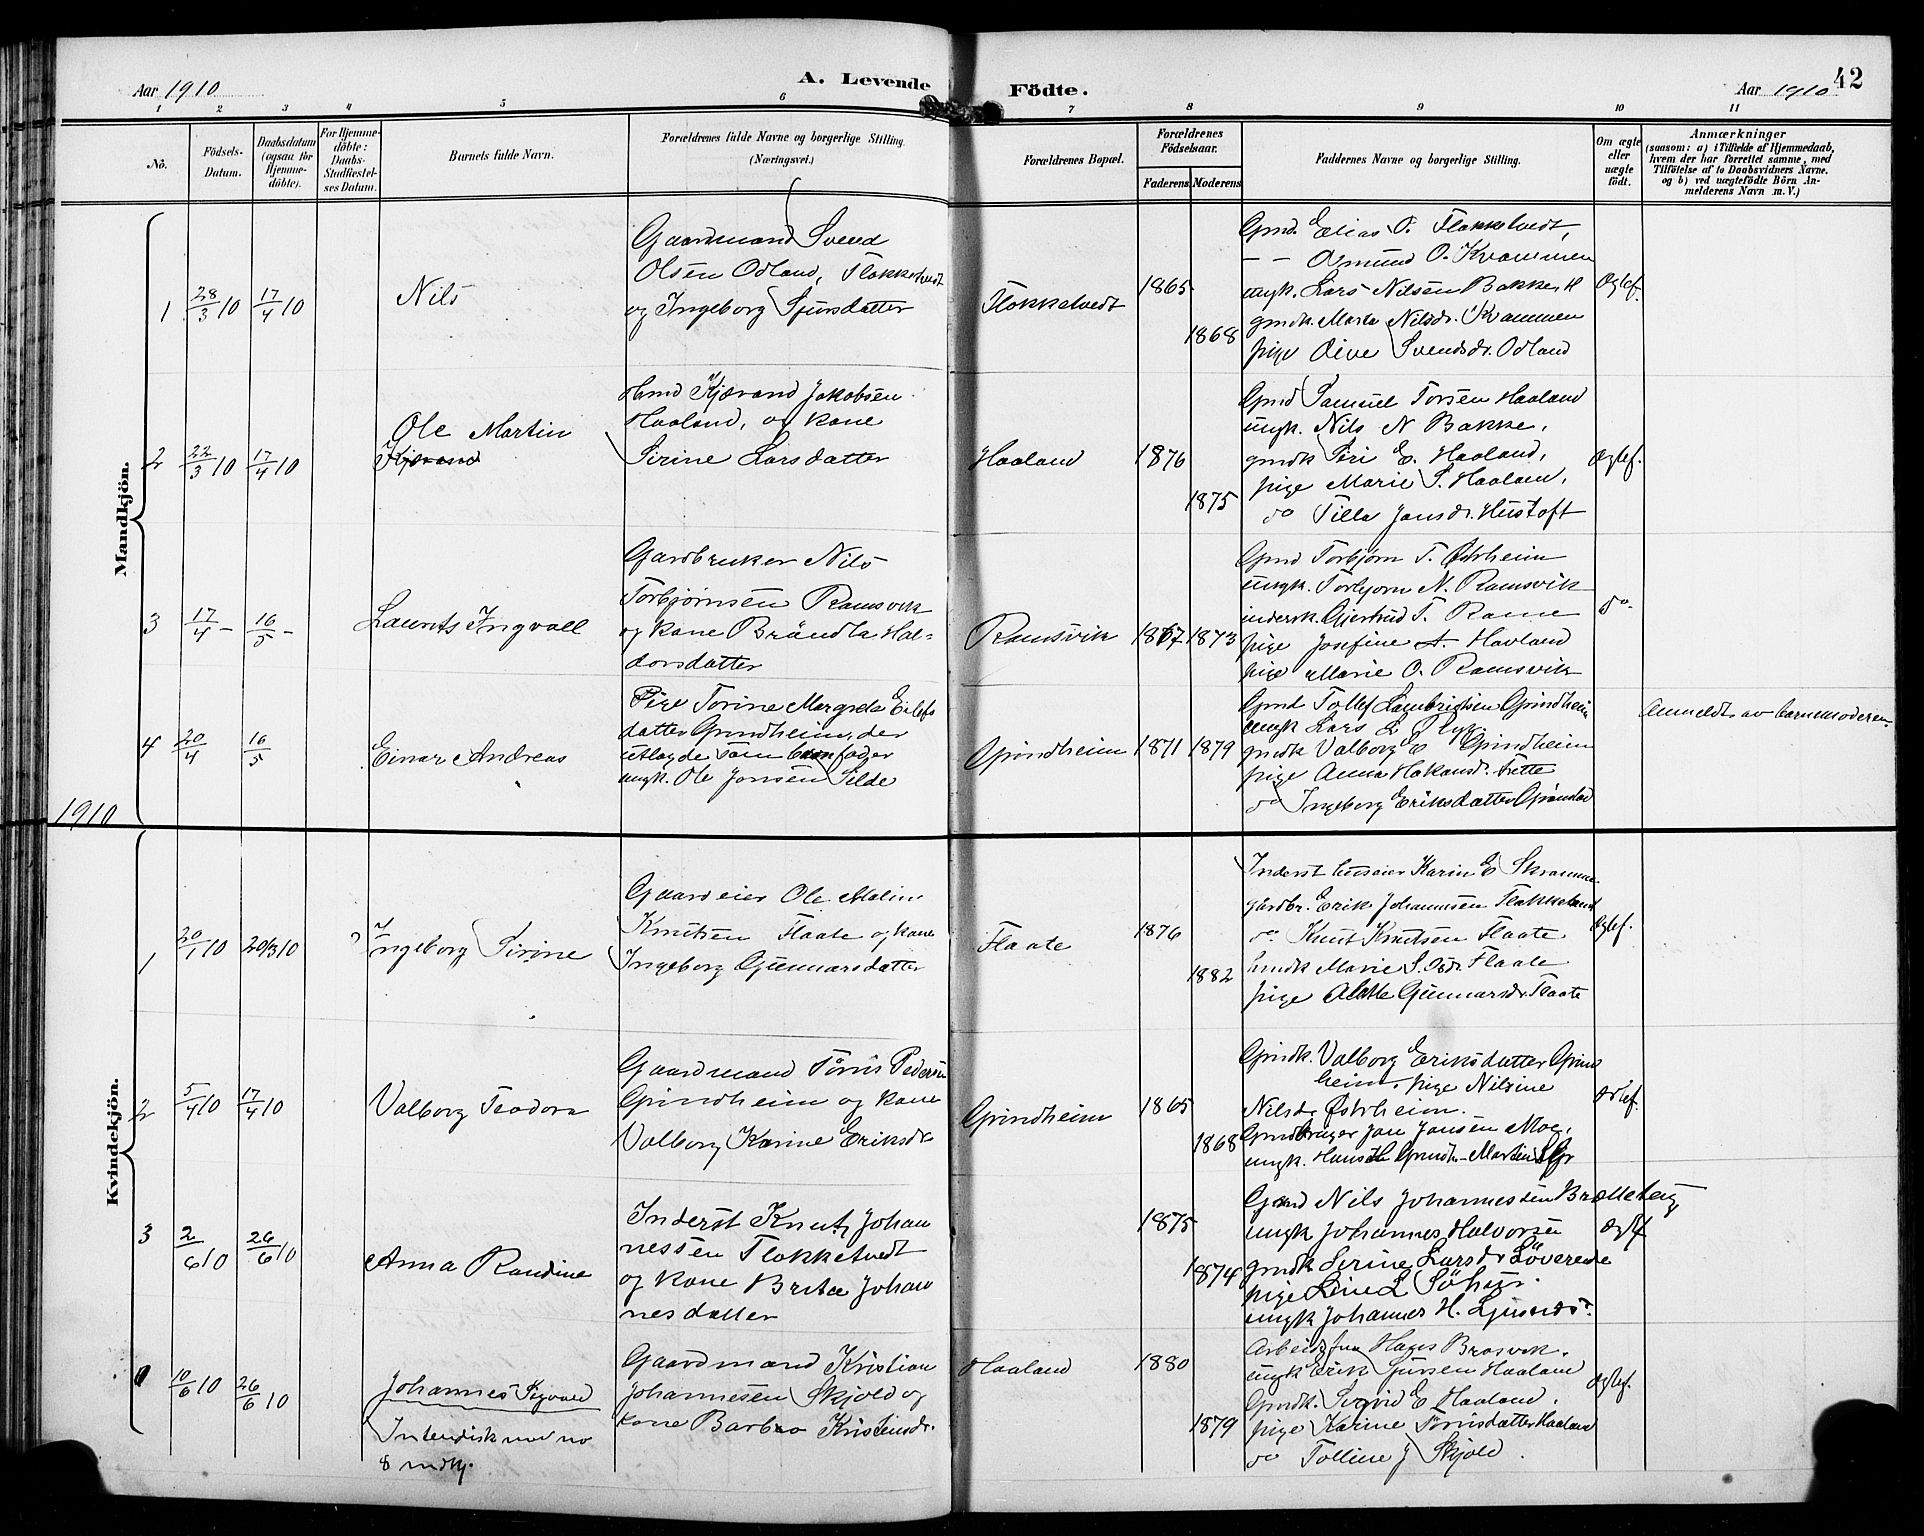 Aar 1910
A. Levende
Födte.
Aar 1910
42
1 2 3 4 5 6 7 8 9 10 11
No.
Födsels-Datum.
Daabsdatum (ogsaa for Hjemme-döbte).
For Hjemme-döbte: Daabs-Stadfæstel-ses Datum.
Barnets fulde Navn.
Forældrenes fulde Navne og borgerlige Stilling. (Næringsvei.)
Forældrenes Bopæl.
Forældrenes Födselsaar.
Faderens
Moderens
Faddernes Navne og borgerlige Stilling.
Om ægte eller uægte födt.
Anmærkninger
(saasom: a) i Tilfælde af Hjemmedaab, hvem der har forrettet samme, med Tilföielse af to Daabsvidners Navne, og b) ved uægtefödte Börn An-melderens Navn m. V.)
Mandkjön.
1
28/3 10
17/4 10
Nils
Gaardmand Svend
Olsen Odland, Flokketvedt
og Ingeborg Sjursdatter
Flokketvedt
1865
1868
Gmd. Elias O. Flokketvedt,
– – Osmund O. Kvammen
ungk. Lars Nilsen Bakke
gmdk. Marta Nilsdr. Kvammen
pige Oive Svendsdr. Odland
Ægtef.
2
22/3 10
17/4 10
Ole Martin
Kjærand
Hmd Kjærand Jakobsen
Haaland, og kone
Sirine Larsdatter
Haaland
1876
1875
Gmd Samuel Torsen Haaland
ungk. Nils N Bakke,
gmdk Siri E. Haaland,
pige Marie S. Haaland,
do Tilla Jansdr. Hustoft
Ægtef.
3
17/4 –
16/5 –
Laurits Ingvall
Gardbruker Nils
Torbjørnsen Ramsvik
og kone Bröndla Hal-
dorsdatter
Ramsvik
1867
1873
Gmd Torbjørn T. Østrheim
ungk. Torbjorn N. Ramsvik
indersk. Gjertrud T. Rame
pige Josefine A. Haaland
pige Marie O. Ramsvik
do.
4
20/4
16/5
Einar Andreas
Pige Torine Margreta Eilefs
datter Grindheim, der
utlagde som barnfader
ungk. Ole Jonsen Silde
Grindheim
1871
1879
Gmd Tollef Lambrigtsen Grindheim
ungk Lars L
gmdk Valborg E Grindheim
pige Anna Hakansdr. Trette
do Ingeborg Eriksdatter
Anmeldt av barnemoderen
1910
Kvindekjön.
1
20/1 10
20/3 10
Ingeborg Sirine
Gaardeier Ole Malim
Knutsen Flaate og kone
Ingeborg Gunnarsdatter
Flaate
1876
1882
Inderst huseier Karin E Skramme
gårdbr. Erik Johannesen Flokketvedt
do. Knut Knutsen Flaate
hmdk Marie S. Flaate
pige Gunnarsdr. Flaate
Ægtef.
2
5/4 10
17/4 10
Valborg Teodora
Gaardmand Törris Pedersen
Grindheim og kone
Valborg Karine Eriksdr
Grindheim
1865
1868
Gmdk. Valborg Eriksdatter Grind
heim, pige Nilsine
Nilsdr Østrheim.
Gmdbruger Jan Jansen Mog,
ungk. Hans H Grindh– Martin
Ægtef.
3
2/6 10
26/6 10
Anna Randine
Inderst Knut Johan
nessen Flokketvedt
og kone Brita Johan
nesdatter
1875
1874
Gmd Nils Johannessen Bratteberg
ungk Johannes Halvorsen
gmdk Serine Larsdr Löverede
pige Line L
ungk Johannes H.
Ægtf
10/6 10
26/6 10
Johannes Sigvald
Intendisk
8 mdkj.
Gaardmand Kristian
Johannesen Skjold og
kone Barbro Kristensdr.
Haaland
1880
1879
Arbeidsfm Hans Brosvik.
ungk Erik Sjursen Haaland
Gmdk. Sigrid E Haaland,
pige Karine Törrisdatter Haaland
do Tolline J Skjold
ægtef.